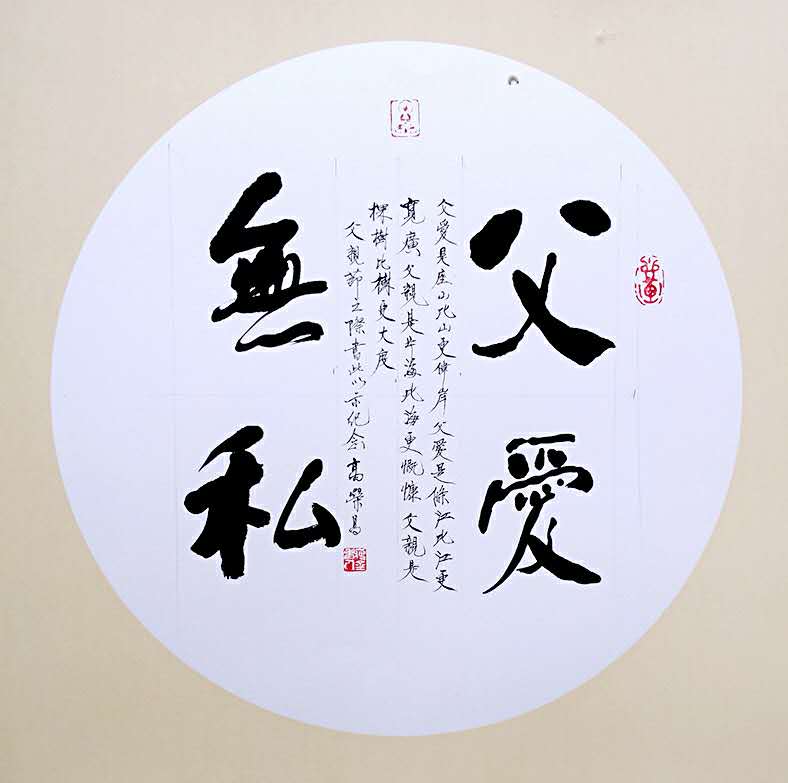 父愛
父愛是座山比山更偉岸父愛是條江比江更
寬廣父親是片海比海更慨慷父親是
棵樹比樹更大度
父親節之際書此以示紀念 高
無私